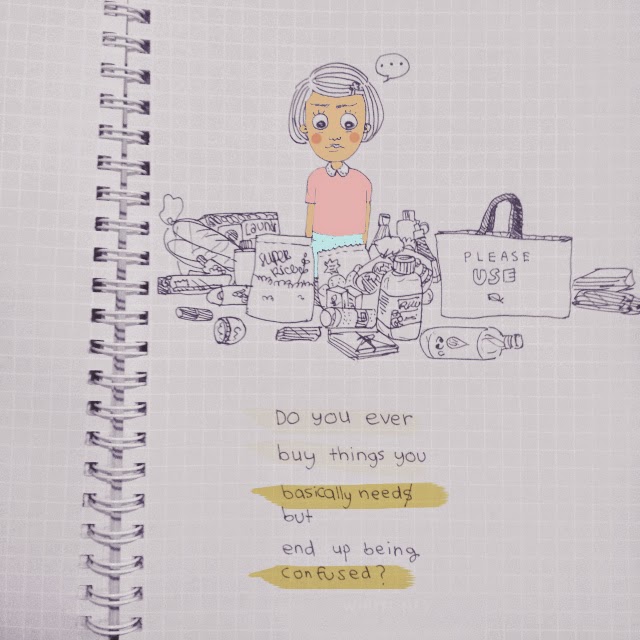 ...
LAUNE
SUPER
RICE
PLEASE
USE
Do you ever
buy things you
basically needs
but
end up being
confused?